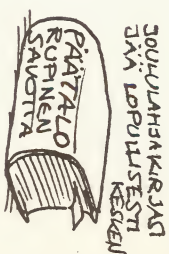 JOULULAHJAKIRJASI
JÄÄ LOPULLISESTI
KESKEN
PÄÄTALO
RUPINEN
SAVOTTA